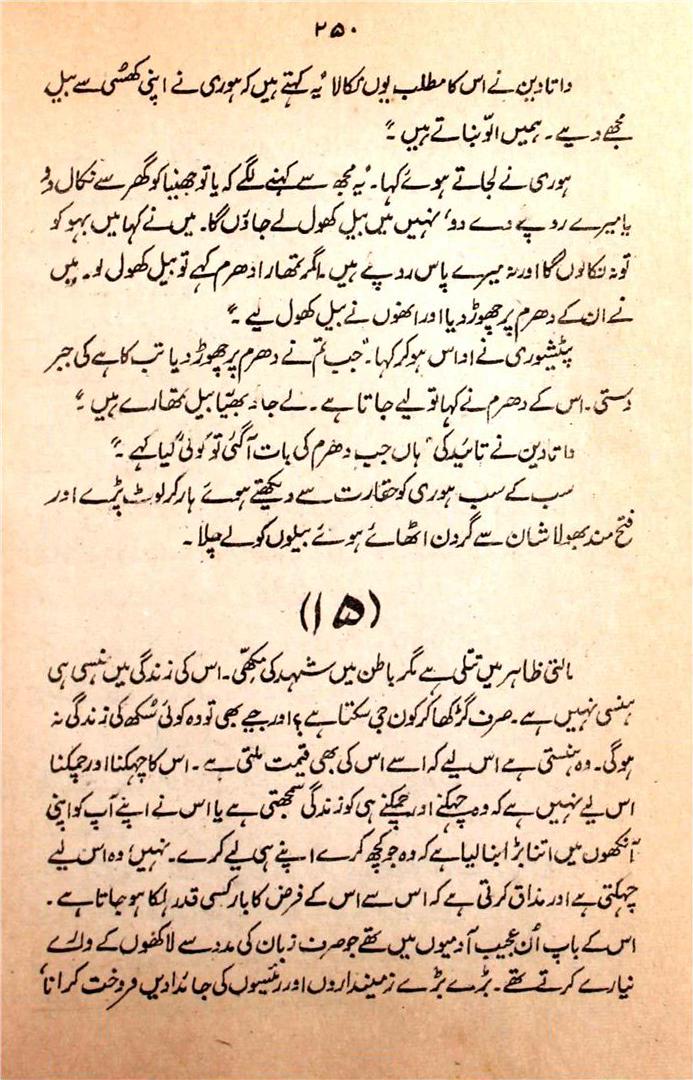 ۲۵۰
داتادین نے اس کا مطلب یوں نکالا "یہ کہتے ہیں کہ ہوری نے اپنی کھسی سے بیل
مجھے دیے۔ ہمیں الّو بناتے ہیں۔"
ہوری نے لجاتے ہوئے کہا۔ "یہ مجھ سے کہنے لگے کہ یا تو جھنیا کو گھر سے نکال دو
یا میرے روپے دے دو، نہیں میں بیل کھول لے جاؤں گا۔ میں نے کہا میں بہو کو
تو نہ نکالوں گا اور نہ میرے پاس روپے ہیں۔ اگر تمھارا دھرم کہے تو بیل کھول لو۔ میں
نے ان کے دھرم پر چھوڑ دیا اور انھوں نے بیل کھول لیے۔"
پٹیشوری نے اداس ہو کر کہا۔ "جب تم نے دھرم پر چھوڑ دیا تب کاہے کی جبر
دستی۔ اس کے دھرم نے کہا تو لیے جاتا ہے۔ لے جاؤ بھیّا بیل تمھارے ہیں۔"
داتادین نے تائید کی "ہاں جب دھرم کی بات آ گئی تو کوئی کیا کہے۔"
سب کے سب ہوری کو حقارت سے دیکھتے ہوئے ہار کر لوٹ پڑے اور
فتح مند بھولا شان سے گردن اٹھائے ہوئے بیلوں کو لے چلا۔
(۱۵)
مالتی ظاہر میں تتلی ہے مگر باطن میں شہد کی مکھّی۔ اس کی زندگی میں ہنسی ہی
ہنسی نہیں ہے۔ صرف گڑ کھا کر کون جی سکتا ہے؟ اور جیے بھی تو وہ کوئی سُکھ کی زندگی نہ
ہوگی۔ وہ ہنستی ہے اس لیے کہ اسے اس کی بھی قیمت ملتی ہے۔ اس کا چہکنا اور چمکنا
اس لیے نہیں ہے کہ وہ چہکنے اور چمکنے ہی کو زندگی سمجھتی ہے یا اس نے اپنے آپ کو اپنی
آنکھوں میں اتنا بڑا بنا لیا ہے کہ وہ جو کچھ کرے اپنے ہی لیے کرے۔ نہیں، وہ اس لیے
چہکتی ہے اور مذاق کرتی ہے کہ اس سے اس کے فرض کا بار کسی قدر ہلکا ہو جاتا ہے۔
اس کے باپ اُن عجیب آدمیوں میں تھے جو صرف زبان کی مدد سے لاکھوں کے وارے
نیارے کرتے تھے۔ بڑے بڑے زمینداروں اور رئیسوں کی جائدادیں فروخت کرانا،